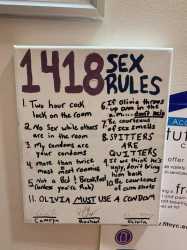 1418 SEX
RULES
1. Two hour cock
lock on the room
2. No Sex while others
are in the room
3. My condoms are
your condoms
4. more than twice
must roomies
5. Not a Bed & Breakfast
(unless you're Rob)
6. If Olivia throws
up in the
a.m. don't help
7. Be courteous
of sex smells
8. SPITTERS
ARE
QUITTERS
9. If we think he's
ugly, don't bring
him back
10. Be courteous
of cum shots
11. OLIVIA MUST USE A CONDOM
Camryn
Rachael
Olivia